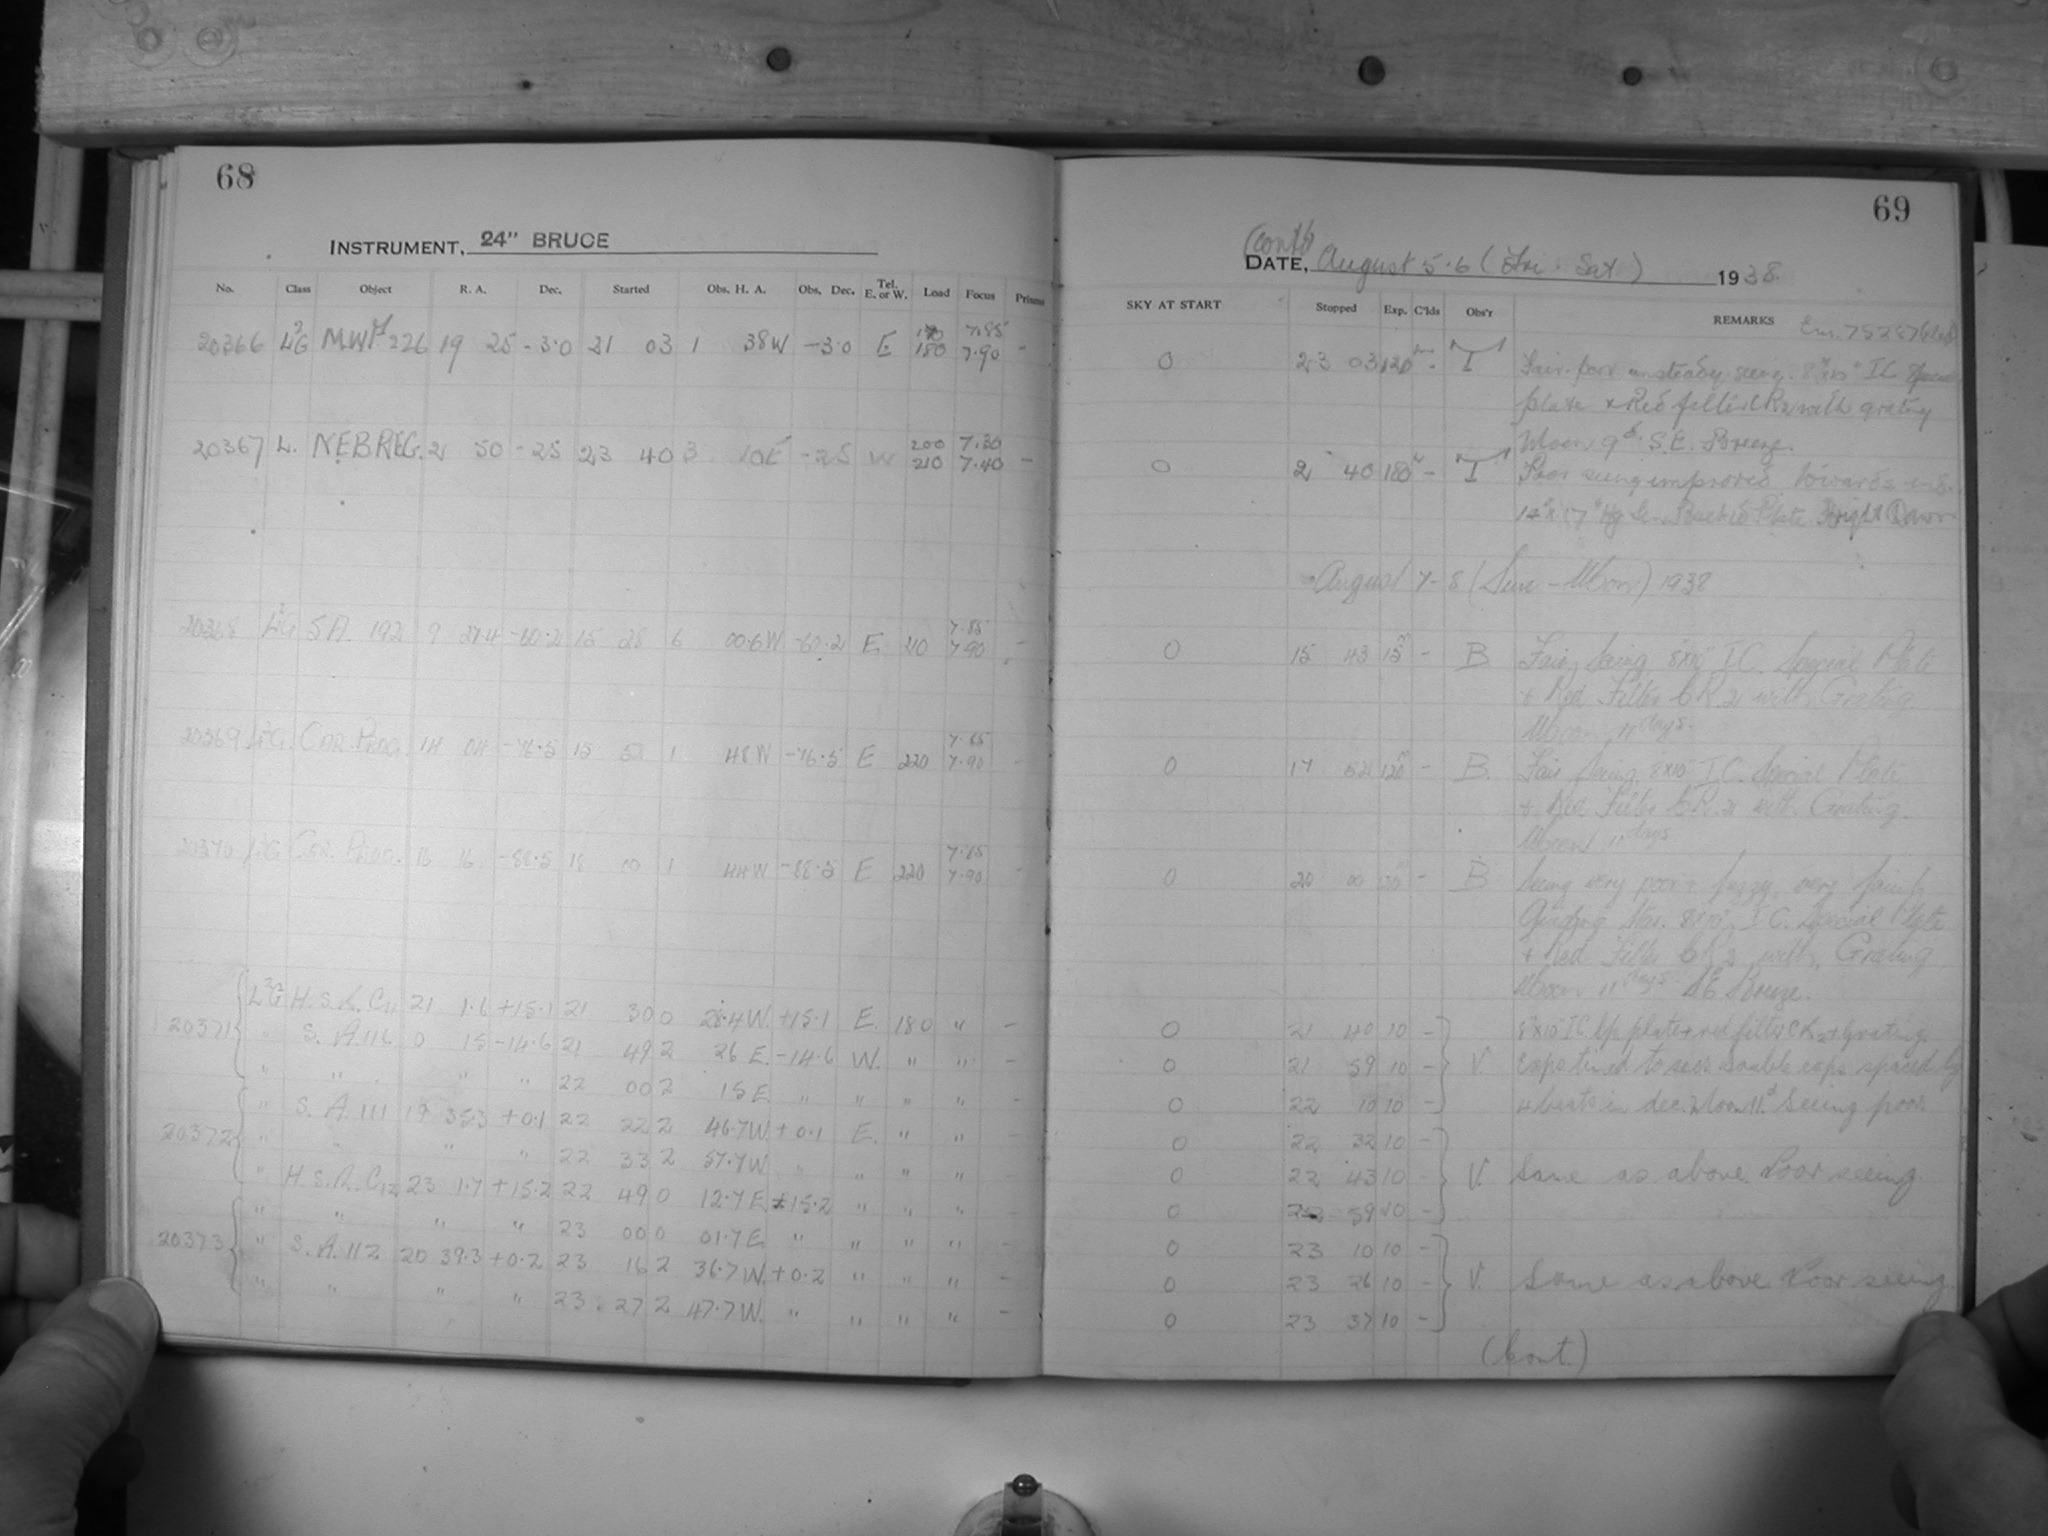 68
INSTRUMENT, 24" BRUCE
No. Class Object R. A. Dec. Started Obs. H. A. Obs. Dec. Tel. E. or W. Load Focus Prisms
20366 L²G MWF 226 19 25 -3.0 21 03 1 38W -3.0 E 180 7.85 7.90 -
20367 L. NEB REG. 21 50 -25 23 40 3 10E -25 W 200 210 7.30 7.40 -
20368 L²G S.A. 192 9 27.4 -60.2 15 28 6 00.6W -60.2 E 210 7.85 7.90 -
20369 L²G. CAR. PROG. 14 04 -76.5 15 52 1 48W -76.5 E 220 7.85 7.90 -
20370 L²G CAR. PROG. 16 16 -88.5 18 00 1 44W -88.5 E 220 7.85 7.90 -
20371 L²G H.S.R. C11 21 1.6 +15.1 21 30 0 28.4W. +15.1 E. 180 " -
" S.A. 116 0 15 -14.6 21 49 2 26 E. -14.6 W. " " -
" " " " 22 00 2 15 E " " " " -
20372 " S.A. 111 19 35.3 +0.1 22 22 2 46.7W. +0.1 E. " " -
" " " " 22 33 2 57.7W " " " " -
" H.S.R. C12 23 1.7 +15.2 22 49 0 12.7E +15.2 " " " -
20373 " " " " 23 00 0 01.7E " " " " -
" S.A. 112 20 39.3 +0.2 23 16 2 36.7W. +0.2 " " " -
" " " " 23 27 2 47.7W. " " " " -
69
(Cont)
DATE, August 5-6 (Fri - Sat) 1938.
SKY AT START Stopped Exp. C'lds Obs'r REMARKS
0 23 03 120 - Fair-poor unsteady seeing. 8"x10" I C Special
plate & Red filter C R2 with grating
Moon 9d. S.E. Breeze.
0 2 40 180 - Poor seeing improved towards end.
14"x17" Backed Plate Bright Dawn
August 7-8 (Sun - Moon) 1938
0 15 43 15 - B Fair seeing 8x10" I.C. Special Plate
+ Red Filter C R.2 with Grating
Moon 11 days.
0 17 52 120 - B. Fair seeing 8x10" I.C. Special Plate
+ Red Filter C R.2 with Grating.
Moon 11 days
0 20 00 120 - B Seeing very poor + fuzzy, very faint
Guiding Star. 8x10" I.C. Special Plate
+ Red Filter C R 2 with Grating
Moon 11 days SE Breeze.
0 21 40 10 - 8"x10" IC Sp plate + red filter C R2 + Grating.
0 21 59 10 - V. Exps timed to secs double exps spaced by
0 22 10 10 - 4 beats in dec. Moon 11d Seeing poor.
0 22 32 10 -
0 22 43 10 - V. Same as above. Poor seeing.
0 22 59 10 -
0 23 10 10 -
0 23 26 10 - V. Same as above. Poor seeing.
0 23 37 10 -
(Cont.)